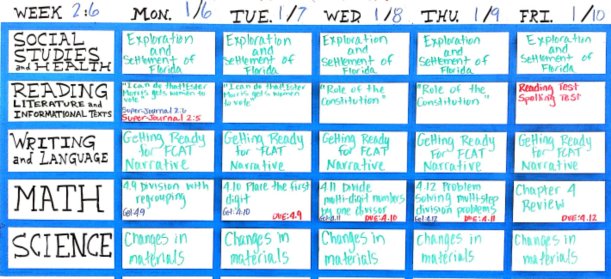 WEEK 2:6
MON. 1/6
TUE. 1/7
WED 1/8
THU. 1/9
FRI. 1/10
SOCIAL
STUDIES
and HEALTH
Exploration
and
Settlement of
Florida
Exploration
and
Settlement of
Florida
Exploration
and
Settlement of
Florida
Exploration
and
Settlement of
Florida
Exploration
and
Settlement of
Florida
READING
LITERATURE and
INFORMATIONAL TEXTS
"I can do that! Esther
Morris gets women to
vote"
Super Journal 2:6
Super Journal 2:5
"I can do that! Esther
Morris gets women to
vote"
"Role of the
Constitution"
"Role of the
Constitution"
Reading Test
Spelling Test
WRITING
and LANGUAGE
Getting Ready
for FCAT
Narrative
Getting Ready
for FCAT
Narrative
Getting Ready
for FCAT
Narrative
Getting Ready
for FCAT
Narrative
Getting Ready
for FCAT
Narrative
MATH
4.9 Division with
regrouping
Get: 4.9
4.10 Place the first
digit
Get: 4.10
DUE: 4.9
4.11 Divide
multi-digit numbers
by one divisor
DUE: 4.10
4.12 Problem
Solving multistep
division problems
Get: 4.12
DUE: 4.11
Chapter 4
Review
DUE: 4.12
SCIENCE
Changes in
materials
Changes in
materials
Changes in
materials
Changes in
materials
Changes in
materials